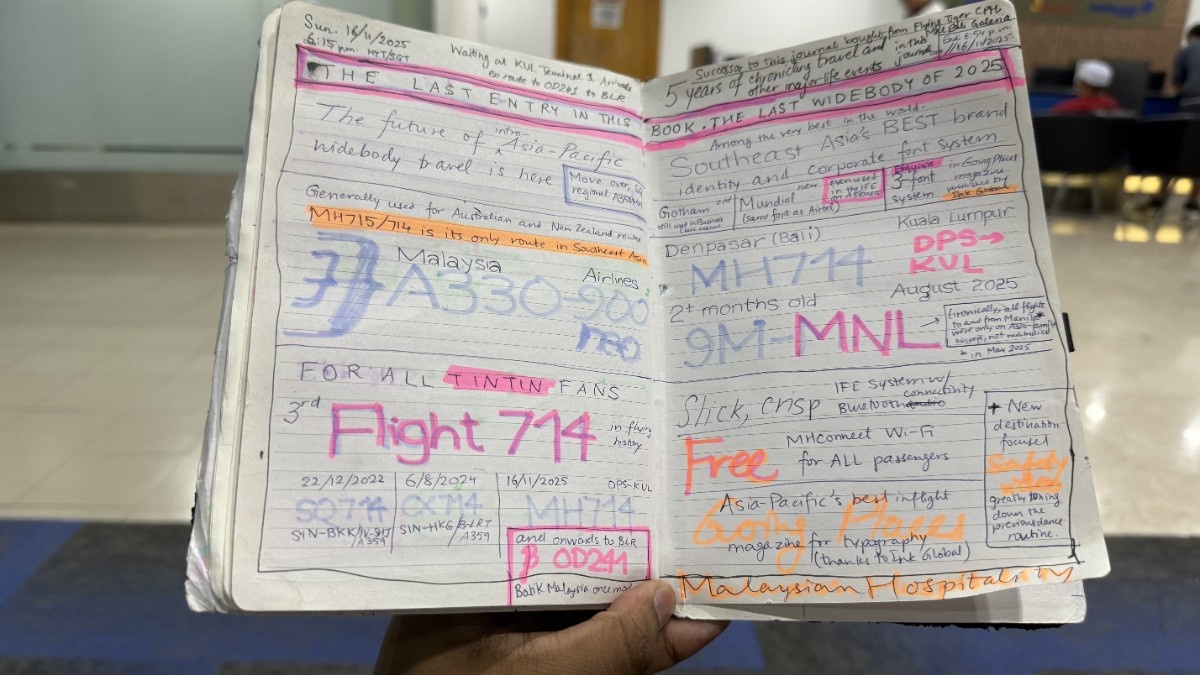 Sun. 16/11/2025
6:15 p.m. MYT/SGT
Waiting at KUL Terminal 1 Arrivals
en route to OD241 to BLR
THE LAST ENTRY IN THIS
The future of intra-Asia-Pacific
widebody travel is here
Move over, SQ
regional A350
Generally used for Australian and New Zealand routes
MH715/714 is its only route in Southeast Asia
Malaysia
Airlines
A330-900
neo
FOR ALL TINTIN FANS
3rd
Flight 714
in flying
history
22/12/2022
6/8/2024
16/11/2025
DPS-KUL
SQ714
CX714
MH714
SIN-BKK
A359
SIN-HKG/B-LRT
A359
and onwards to BLR
OD241
Batik Malaysia once more
Successor to this journal bought from Flying Tiger
Bali Galeria
5 years of chronicling travel and
other major life events in this
journal
End: 6:54 p.m.
16/11/2025
BOOK. THE LAST WIDEBODY OF 2025
Among the very best in the world-
Southeast Asia's BEST brand
identity and corporate font system
Gotham old
still used in Business
Class menus
Mundial new
(same font as Airtel)
even used
in the IFE
3-font
system
in Going Places
magazine
published by
Ink Global
Denpasar (Bali)
Kuala Lumpur
MH714
DPS→
KUL
2+ months old
August 2025
9M-MNL →
(ironically, all flights
to and from Manila*
were only on A320-family
aircraft, not widebodies)
* in May 2025
Slick, crisp
IFE system w/
connectivity
Bluetooth
Free
MHconnect Wi-Fi
for ALL passengers
Asia-Pacific's best inflight
Going Places
magazine for typography
(thanks to Ink Global)
+ New
destination-
focused
Safety
video
greatly toning
down the
previous dance
routine.
Malaysian Hospitality